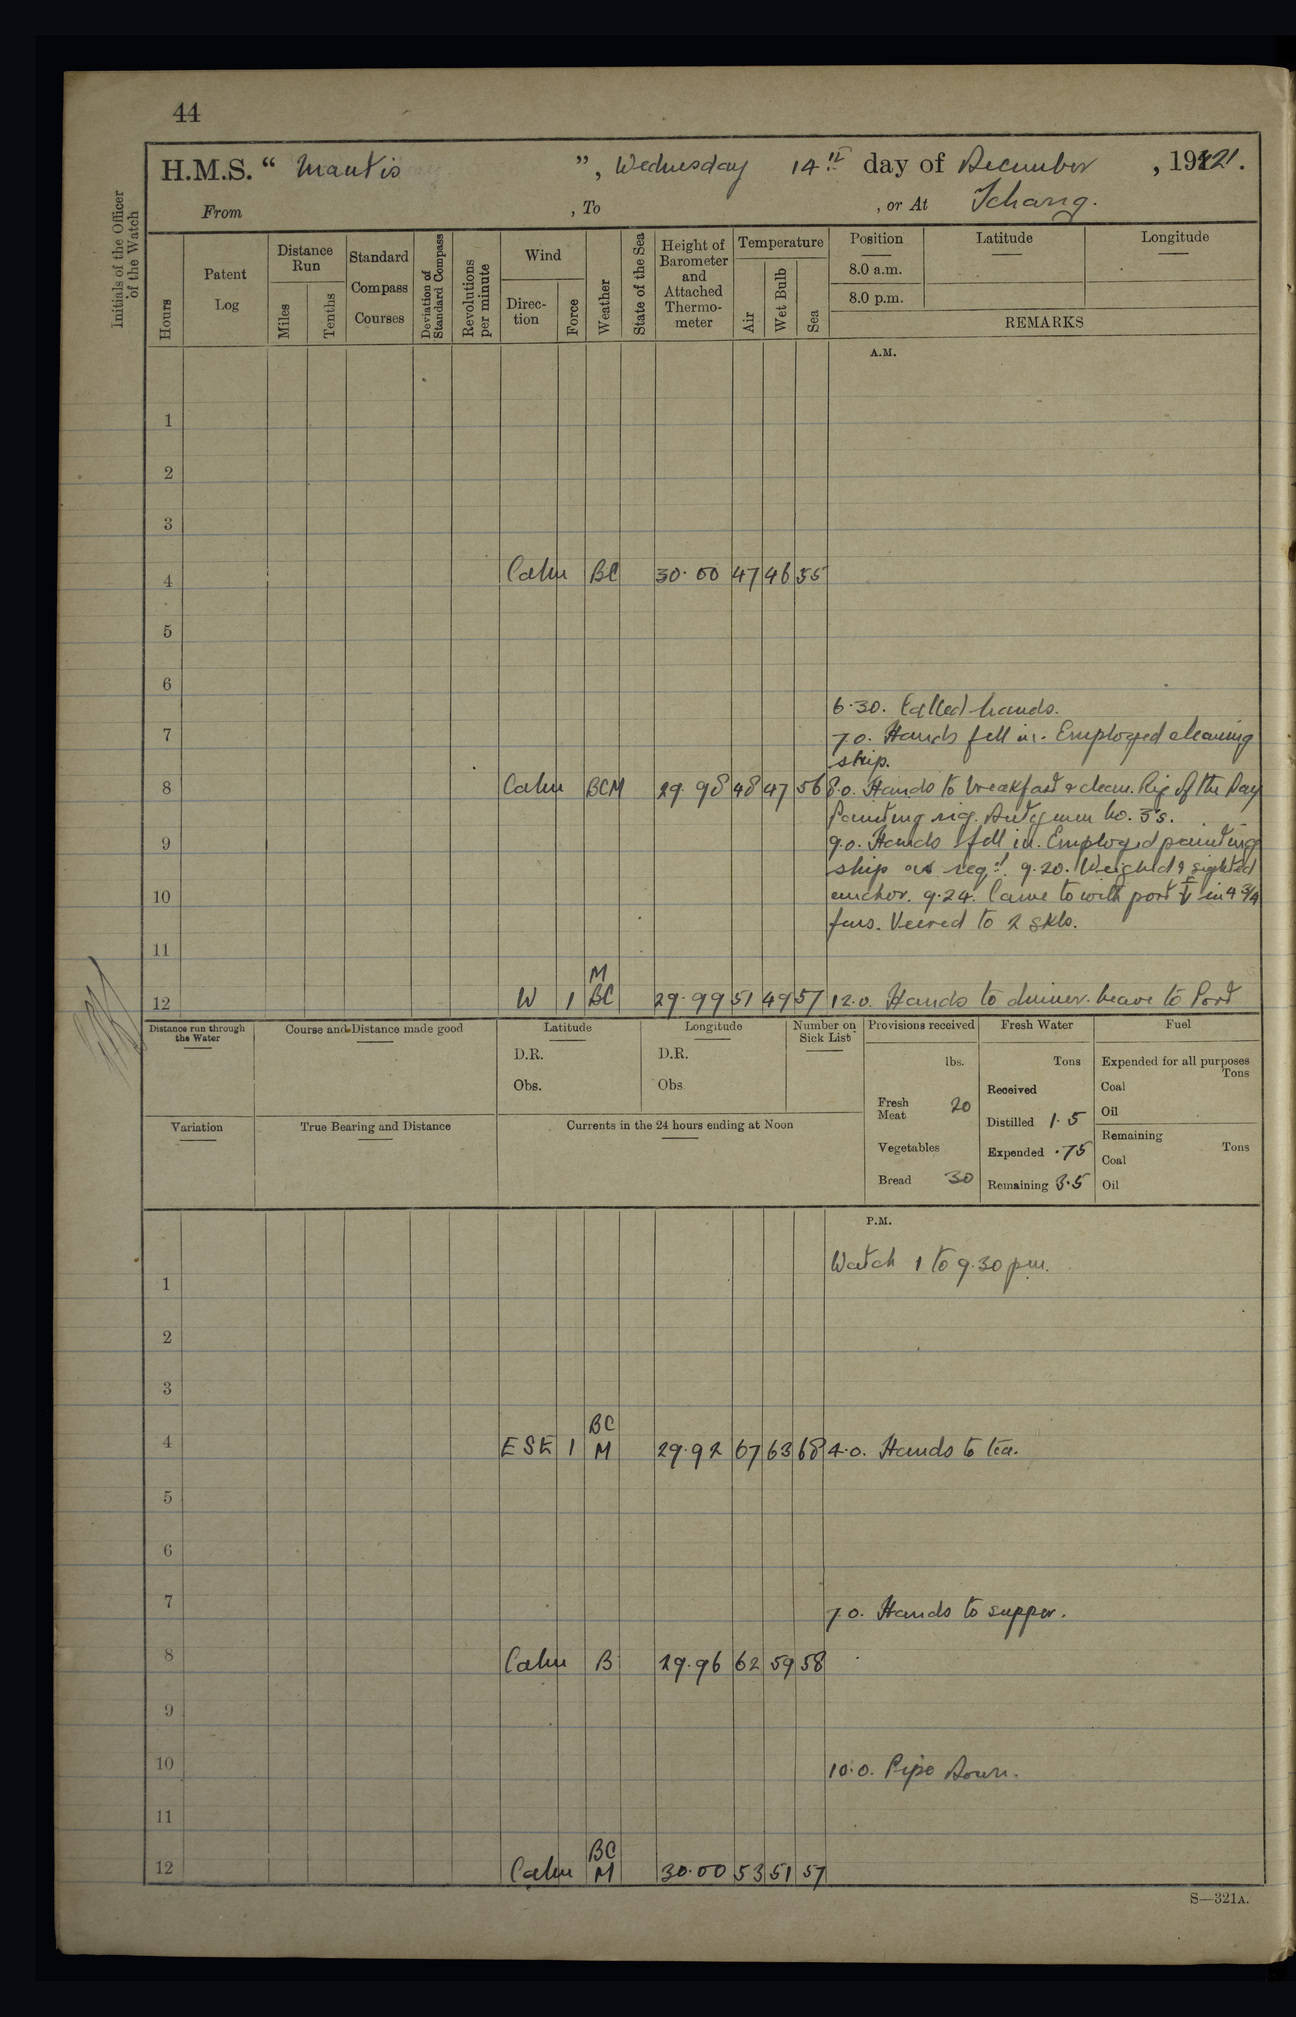 44
H.M.S. “ Mantis ”, Wednesday 14th day of December , 1921.
From , To , or At Ichang.
Initials of the Officer of the Watch
Hours
Patent Log
Distance Run
Miles
Tenths
Standard Compass Courses
Deviation of Standard Compass
Revolutions per minute
Wind
Direc-tion
Force
Weather
State of the Sea
Height of Barometer and Attached Thermo-meter
Temperature
Air
Wet Bulb
Sea
Position
8.0 a.m.
8.0 p.m.
Latitude
Longitude
REMARKS
A.M.
1
2
3
4 Calm BC 30.00 47 46 55
5
6
6.30. Called hands.
7 7.0. Hands fell in. Employed cleaning
ship.
8 Calm BCM 29.98 48 47 56 8.0. Hands to breakfast & clean. Rig of the Day
Painting rig. Duty men No. 3's.
9 9.0. Hands fell in. Employed painting
ship as req:d. 9.20. Weighed & sighted
10 anchor. 9.24. Came to with port ⚓ in 4 3/4
fms. Veered to 2 skls.
11
M
12 W 1 BC 29.99 51 49 57 12.0. Hands to dinner. Leave to Port
Distance run through the Water
Course and Distance made good
Latitude
D.R.
Obs.
Longitude
D.R.
Obs
Number on Sick List
Provisions received
lbs.
Fresh Meat 20
Vegetables
Bread 30
Fresh Water
Tons
Received
Distilled 1.5
Expended .75
Remaining 3.5
Fuel
Expended for all purposes
Tons
Coal
Oil
Remaining
Tons
Coal
Oil
Variation
True Bearing and Distance
Currents in the 24 hours ending at Noon
P.M.
Watch 1 to 9.30 pm.
1
2
3
BC
4 ESE 1 M 29.92 67 63 68 4.0. Hands to tea.
5
6
7 7.0. Hands to supper.
8 Calm B 29.96 62 59 58
9
10 10.0. Pipe Down.
11
BC
12 Calm M 30.00 53 51 57
S—321A.